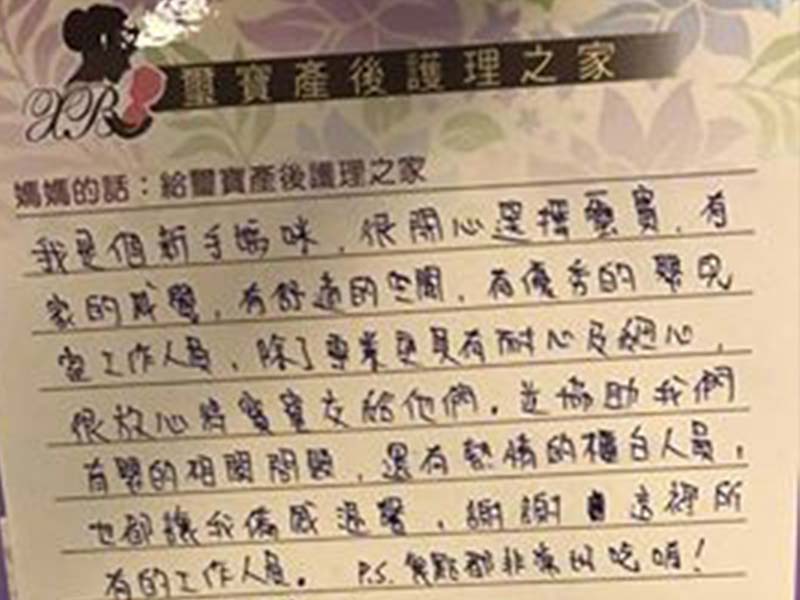 XB
璽寶產後護理之家
媽媽的話：給璽寶產後護理之家
我是個新手媽咪，很開心選擇璽寶，有
家的感覺，有舒適的空間，有優秀的嬰兒
室工作人員，除了專業更具有耐心及細心，
很放心將寶寶交給他們。並協助我們
有嬰的相關問題，還有熱情的櫃台人員，
也都讓我倍感溫馨，謝謝這裡所
有的工作人員。 P.S. 餐點都非常好吃唷！